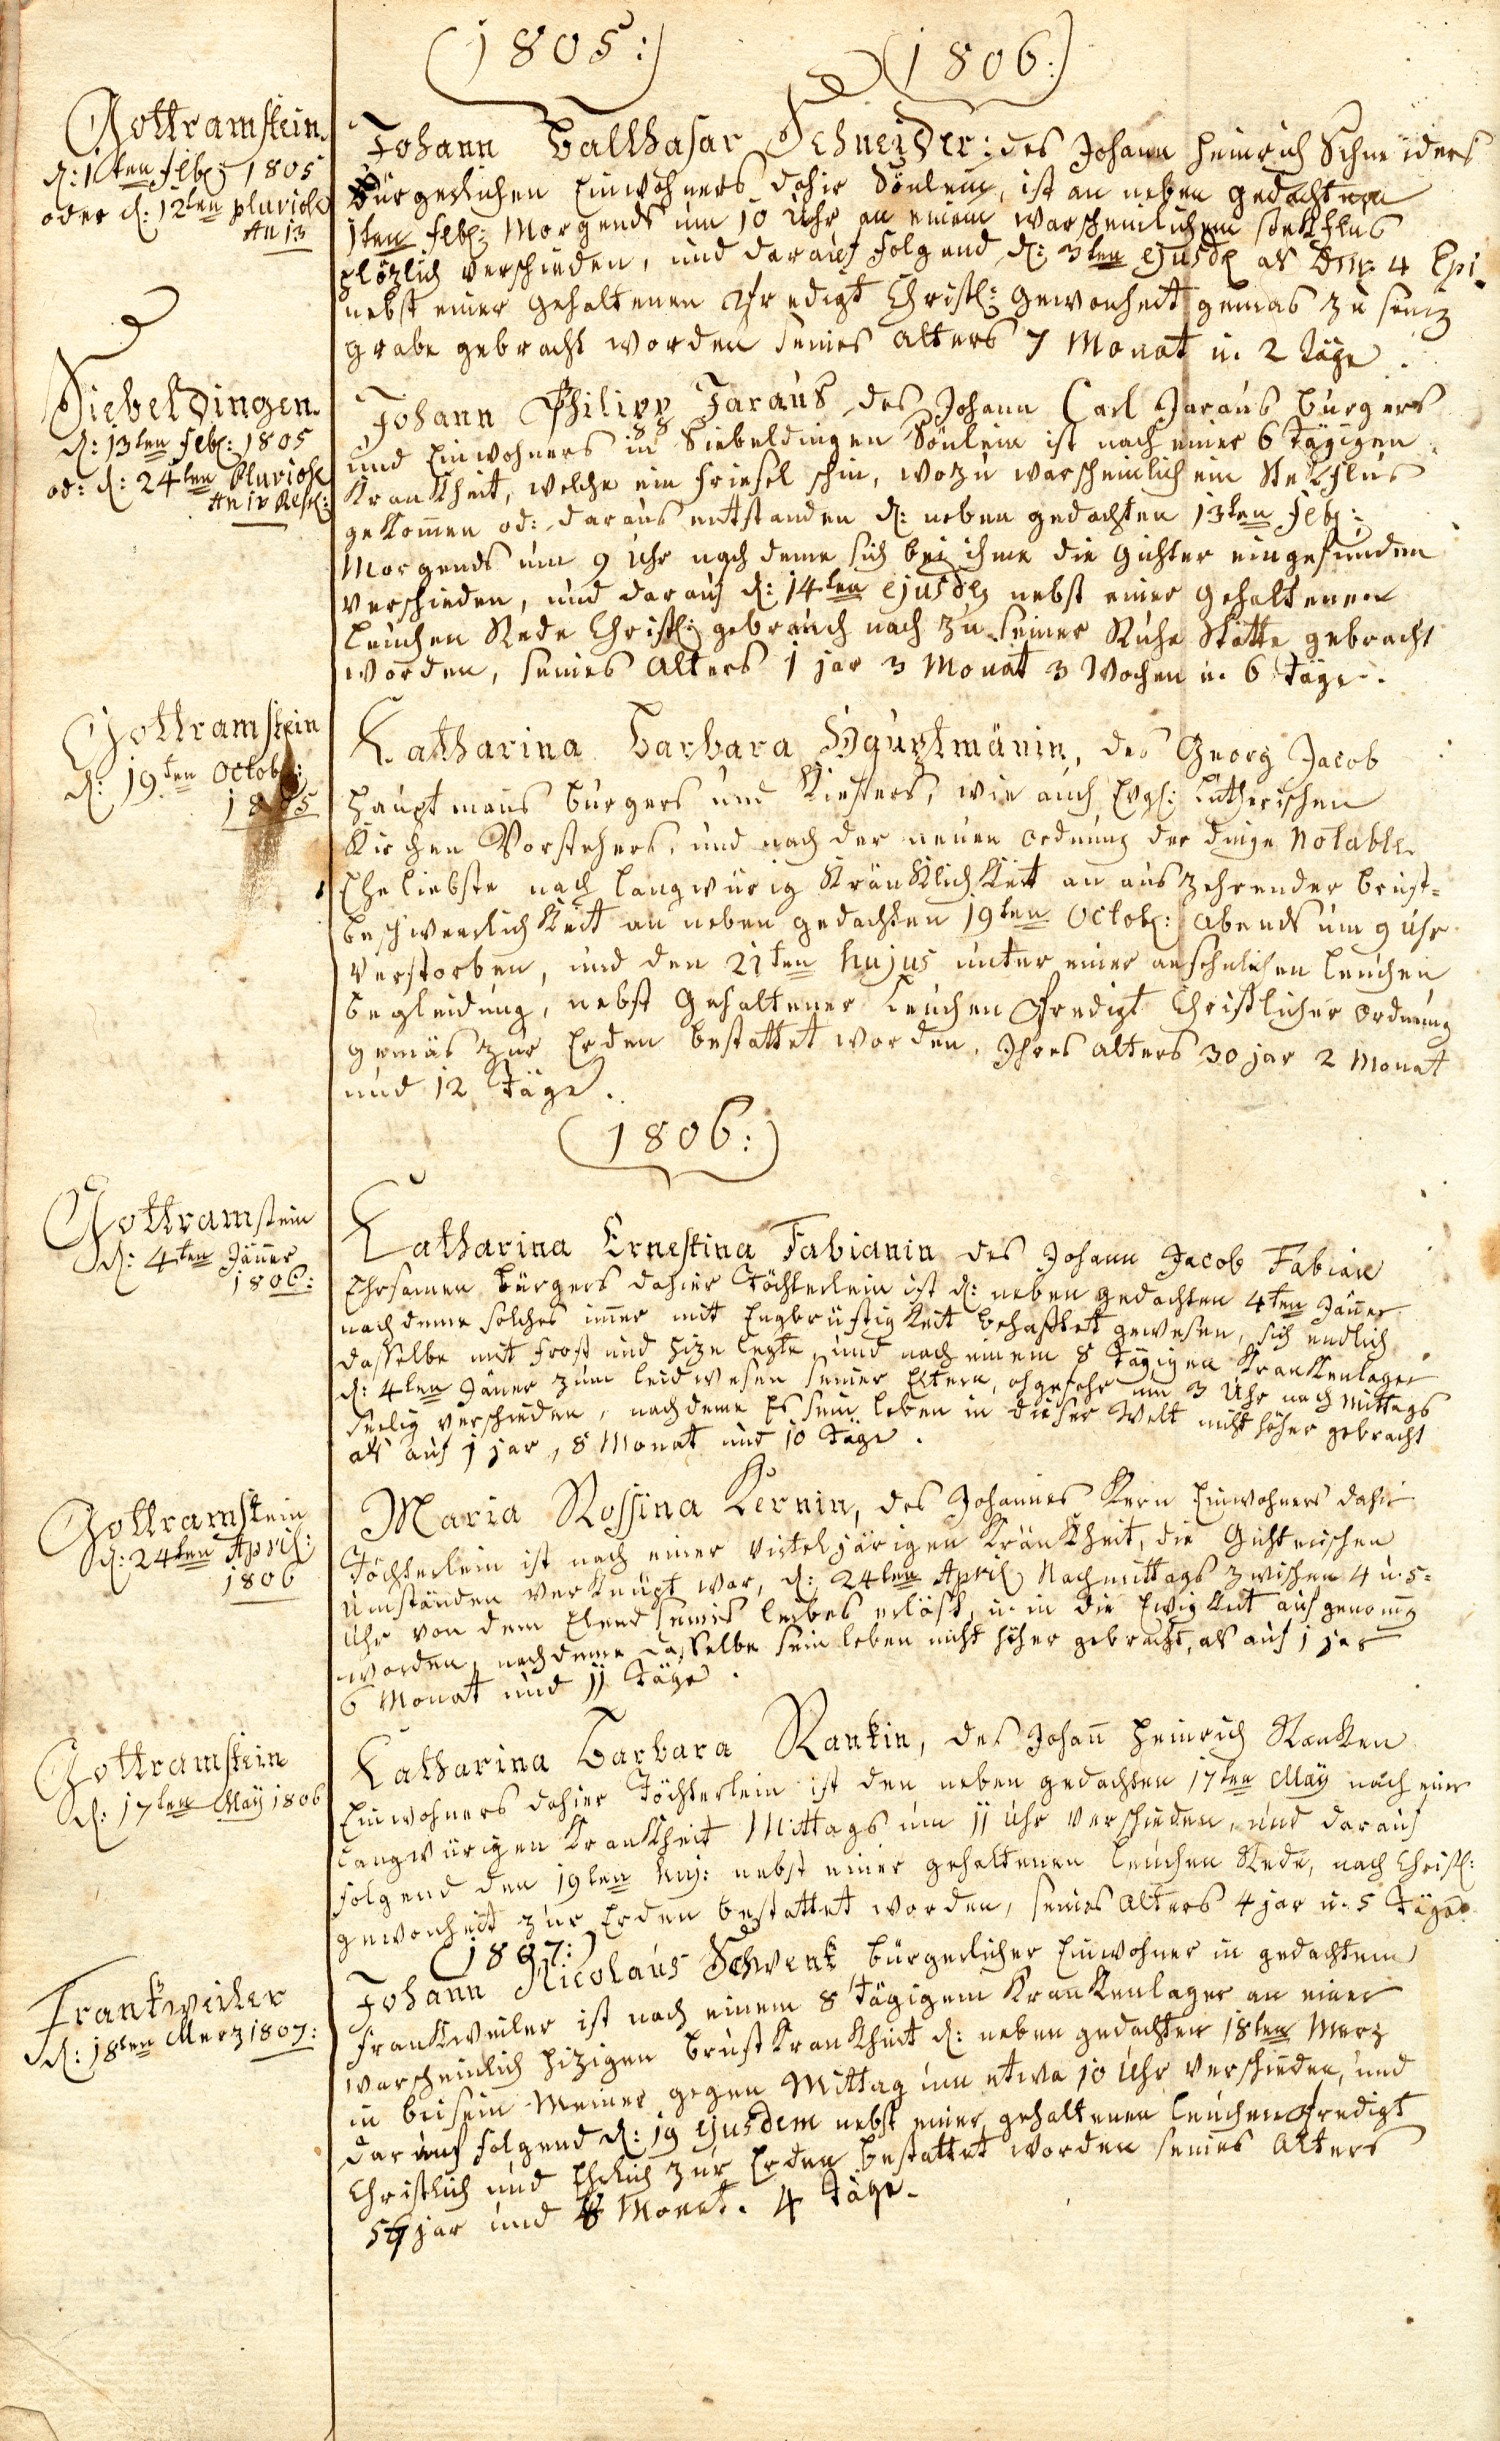 (1805:) (1806:)
Gottramstein.
d: 1ten febr: 1805
oder d: 12ten pluriose
An 13
Johann Balthasar Schneider: des Johann Heinrich Schneiders
Bürgerlichen Einwohners dahir Sönlein, ist an neben gedachten
1ten febr: Morgends um 10 Uhr an einem warscheinlichem stekflus
plözlich verschieden, und darauf folgend d: 3ten ejusd als Dnp: 4 Epi.
nebst einer gehaltenen Predigt Christl: gewonheit gemäs zu seinem
grabe gebracht worden seines alters 7 Monat u. 2 Täge.
Siebeldingen.
d: 13ten febr: 1805
od: d: 24ten Pluriose
An 13 Resp:
Johann Philipp Jaraus des Johann Carl Jaraus burgers
und Einwohners in Siebeldingen Sönlein ist nach einer 6 tägigen
Krankheit, welche ein friesel schin, wozu warscheinlich ein Stekflus
gekom̅en od: daraus entstanden d: neben gedachten 13ten febr:
Morgends um 9 Uhr nach deme sich bei ihme die Gichter eingefunden
verschieden, und darauf d: 14ten ejusdem nebst einer gehaltenen
Leuchen Rede Christl: gebrauch nach zu seiner Ruhe Stätte gebracht
worden, seines alters 1 jar 3 Monat 3 Wochen u. 6 Täge.
Gottramstein
d: 19ten Octobr:
1805
Katharina Barbara Haubtmänin, des Georg Jacob
Hauptmans burgers und Kiefers, wie auch Evgl: Lutherischen
Kirchen Vorstehers, und nach der neuen ordnung der dinge Notable
Eheliebste nach langwürig Kränklichkeit an auszehrender brust=
beschwerlichkeit an neben gedachten 19ten Octob: abends um 9 Uhr
verstorben, und den 21ten hujus unter einer anschnlichen Leuchen
begleidung, nebst gehaltener Leuchen Predigt Christlicher ordnung
gemäs zur Erden bestattet worden, Ihres alters 30 jar 2 Monat
und 12 Täge.
(1806:)
Gottramstein
d: 4ten Jän̅er
1806:
Katharina Ernestina Fabianin des Johann Jacob Fabian
Ehrsamen bürgers dahier Töchterlein ist d: neben gedachten 4ten Jän̅er
nach deme solches im̅er mit Engbrüstigkeit behafftet gewesen, sich endlich
dasselbe mit frost und hize legte, und nach einem 8 tägigen Krankenlager
d: 4ten Jäner zum leidwesen seiner Eltern, ohgefehr um 3 Uhr nach mittags
seelig verschieden, nachdeme Es sein leben in dieser Welt nicht höher gebracht
als auf 1 jar, 8 Monat und 10 Täge.
Gottramstein
d: 24ten April:
1806
Maria Rossina Kernin, des Johannes Kern Einwohners dahir
Töchterlein ist nach einer vierteljärigen Kränkheit, die Gichterischen
Umständen verknüpt war, d: 24ten April Nachmittags zwischen 4 u. 5=
Uhr von dem Elend seines leibes erlöst, u. in die Ewigkeit aufgenom̅en
worden, nachdeme dasselbe sein leben nicht höher gebracht, als auf 1 jar
6 Monat und 11 Täge.
Gottramstein
d: 17ten May 1806
Katharina Barbara Rankin, des Johan̅ Heinrich Ranken
Einwohners dahier Töchterlein ist den neben gedachten 17ten May nach einer
langwürigen Krankheit Mittags um 11 Uhr verschieden, und darauf
folgend den 19ten huj: nebst einer gehaltenen Leuchen Rede, nach Christl:
gewonheit zur Erden bestattet worden, seines alters 4 jar u. 5 Täge.
(1807:)
Frankweiler
d: 18ten Merz 1807:
Johann Nicolaus Schwenk bürgerlicher Einwohner in gedachtem
Frankweiler ist nach einem 8 tägigem Krankenlager an einer
warscheinlich hizigen brustkrankheit d: neben gedachten 18ten Merz
in beisein Meiner gegen Mittag um etwa 10 Uhr verschieden, und
darauf folgend d: 19 ejusdem nebst einer gehaltenen Leuchen Predigt
Christlich und Ehrlich zur Erden bestattet worden seines Alters
jar und 8 Monat. 4 Täge.